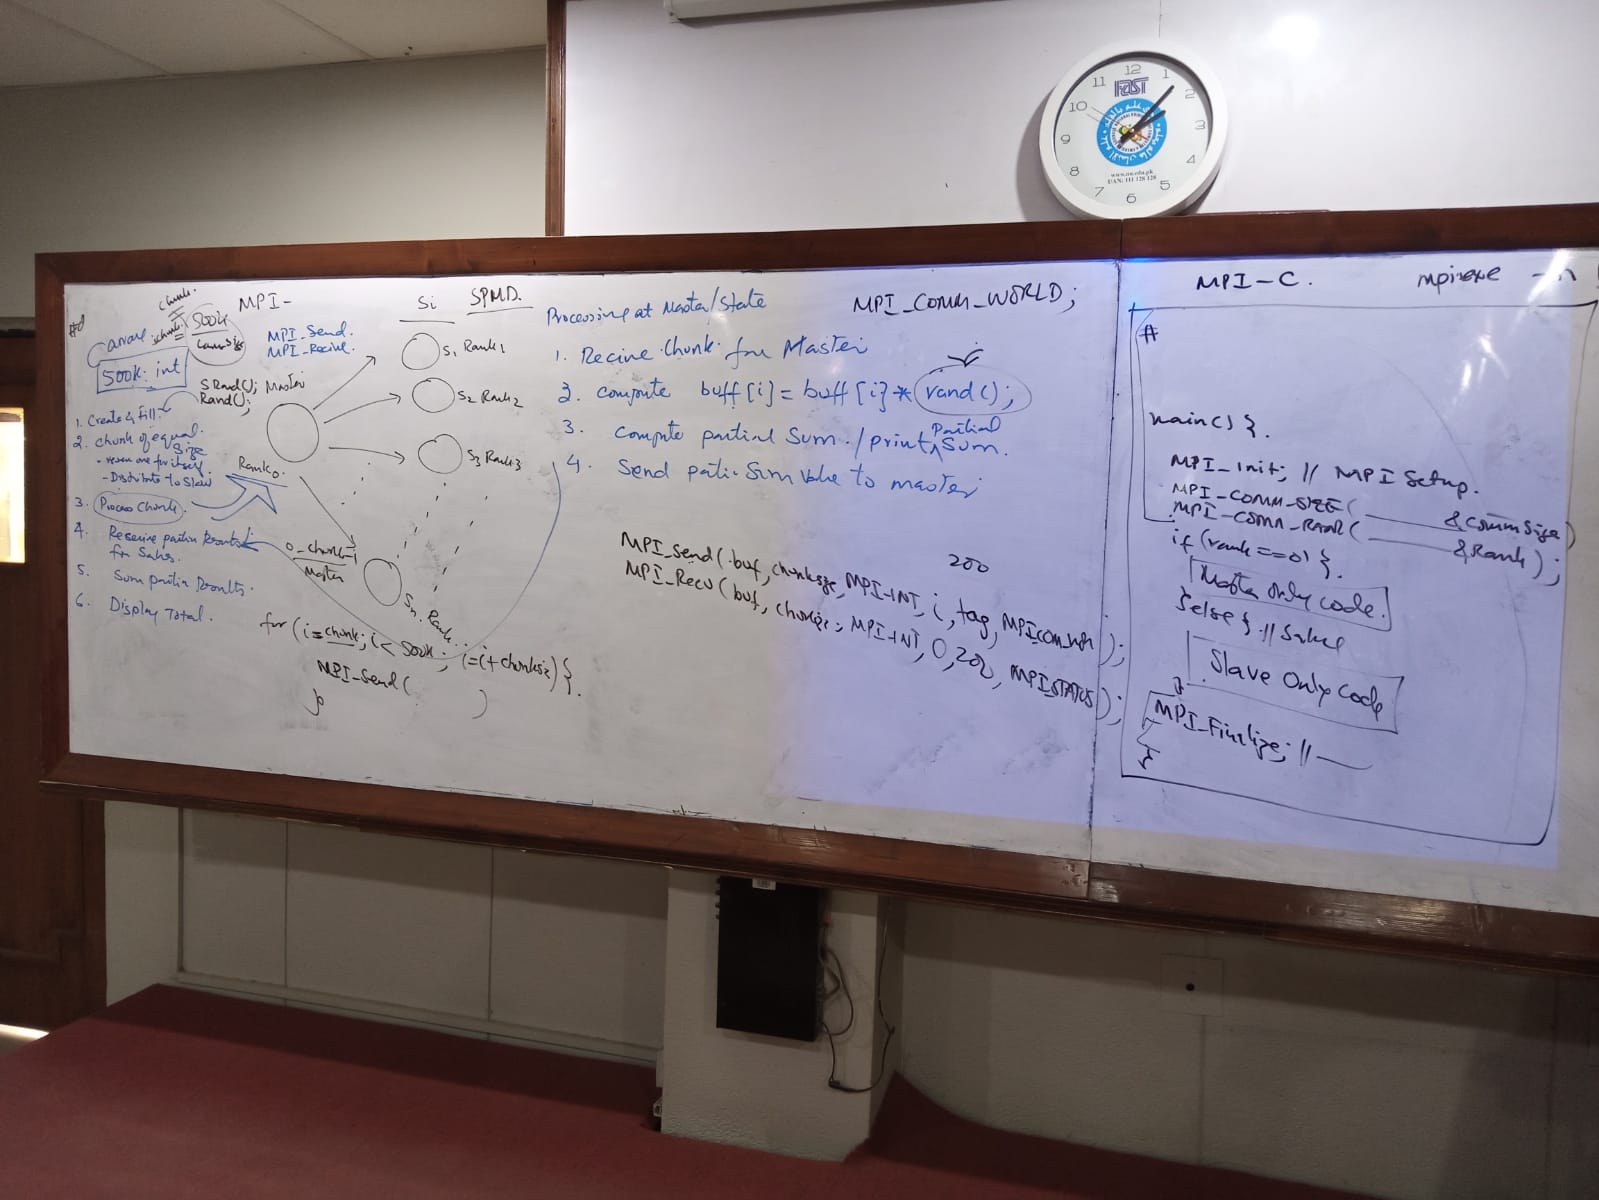 MPI-
500k
commsize
array
500k: int
MPI_Send.
MPI_Recive.
SRand(); Master
Rand();
1. Create & Fill
2. chunk of equal
Size
- Distribute to Slave
3. Process Chunk.
4. Receive partia Results
5. Sum partia Results.
6. Display Total.
Rank0.
0_chunk-1
Master
Si SPMD.
S1 Rank1
S2 Rank2
S3 Rank3
Sn. Rank...
for (i=chunk; i< 500k; i=i+chunksiz) {
MPI_Send( )
}
Processing at Master/Slave
1. Recive Chunk for Master
2. compute buff[i] = buff[i] * rand();
3. compute partial Sum. / print Partial Sum.
4. Send parti. Sum Value to master
MPI_COMM_WORLD;
200
MPI_Send(buf, chunksize, MPI-INT, i, tag, MPICOM_WR);
MPI_Recv(buf, chunksize, MPI-INT, 0, 200, MPI STATUS);
MPI-C. mpiexe -n
#
main() {.
MPI_Init; // MPI Setup.
MPI_COMM_SIZE( &CommSize)
MPI_COMM_RANK( &Rank);
if (rank==0) {.
Master Only code.
}else{ // Salve
Slave Only Code
}
MPI_Finalize; //
}
12
1
2
3
4
5
6
7
8
9
10
11
FAST
www.nu.edu.pk
UAN: 111 128 128